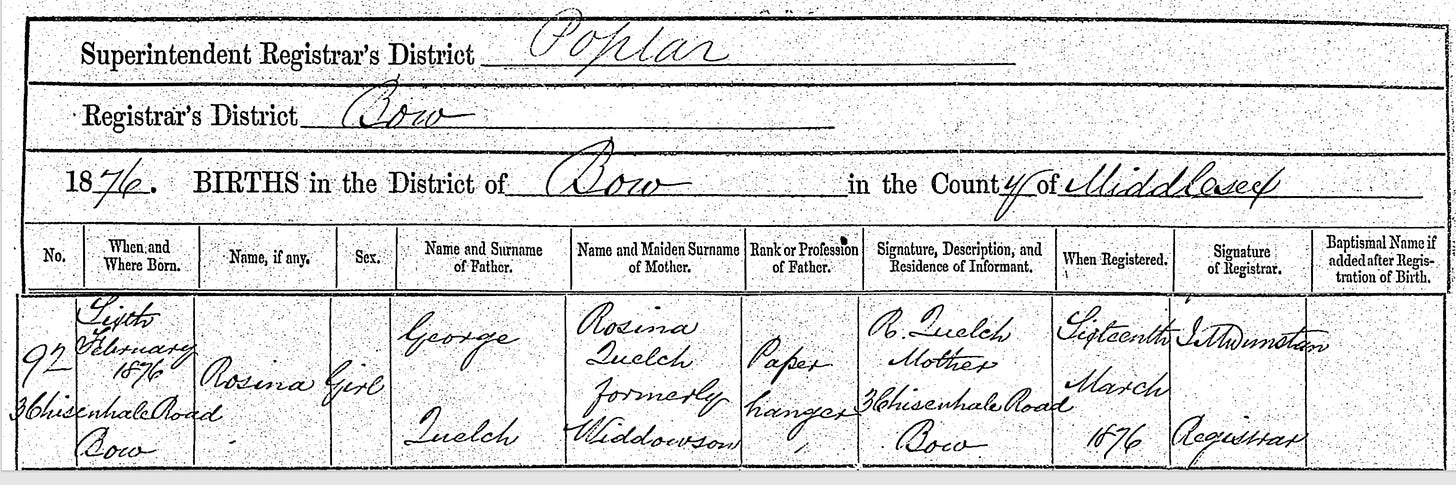 Superintendent Registrar's District Poplar
Registrar's District Bow
1876. BIRTHS in the District of Bow in the County of Middlesex
No.
When and
Where Born.
Name, if any.
Sex.
Name and Surname
of Father.
Name and Maiden Surname
of Mother.
Rank or Profession
of Father.
Signature, Description, and
Residence of Informant.
When Registered.
Signature
of Registrar.
Baptismal Name if
added after Regis-
tration of Birth.
92
Sixth
February
1876
3 Chisenhale Road
Bow
Rosina
Girl
George
Quelch
Rosina
Quelch
formerly
Widdowson
Paper
hanger
R. Quelch
Mother
3 Chisenhale Road
Bow
Sixteenth
March
1876
Dunstan
Registrar